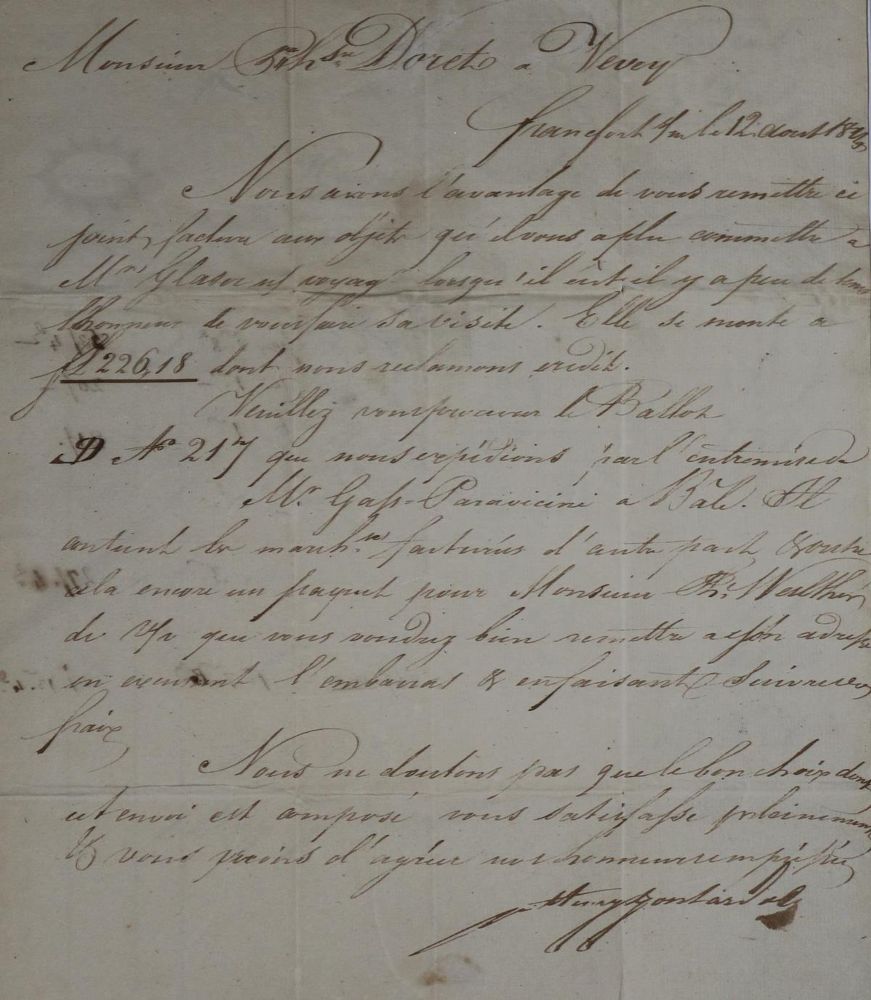 Monsieur Doret a Vevey
Francfort s/m le 12 aout
Nous avons l'avantage de vous remettre ci
joint, facture aux objets qu'il vous a plu commettre a
Mr. Glaser n/ voyagr lorsqu'il eut il y a peu de tems
l'honneur de vous faire sa visite. Elle se monte a
f 226,18 dont nous reclamons credit.
Veuillez vous procurer le Ballot
D No 217 que nous expédions par l'entremise de
Mr. Gass-Paravicini a Bâle. Il
contient les marchses facturées d'autre part & outre
cela encore un paquet pour Monsieur
de v/v que vous voudrez bien remettre a son adresse
en excusant l'embarras & en faisant suivre
fraix
Nous ne doutons pas que le bon choix dont
cet envoi est composé vous satisfasse pleinement
& vous prions d'agréer nos honneurs empressés